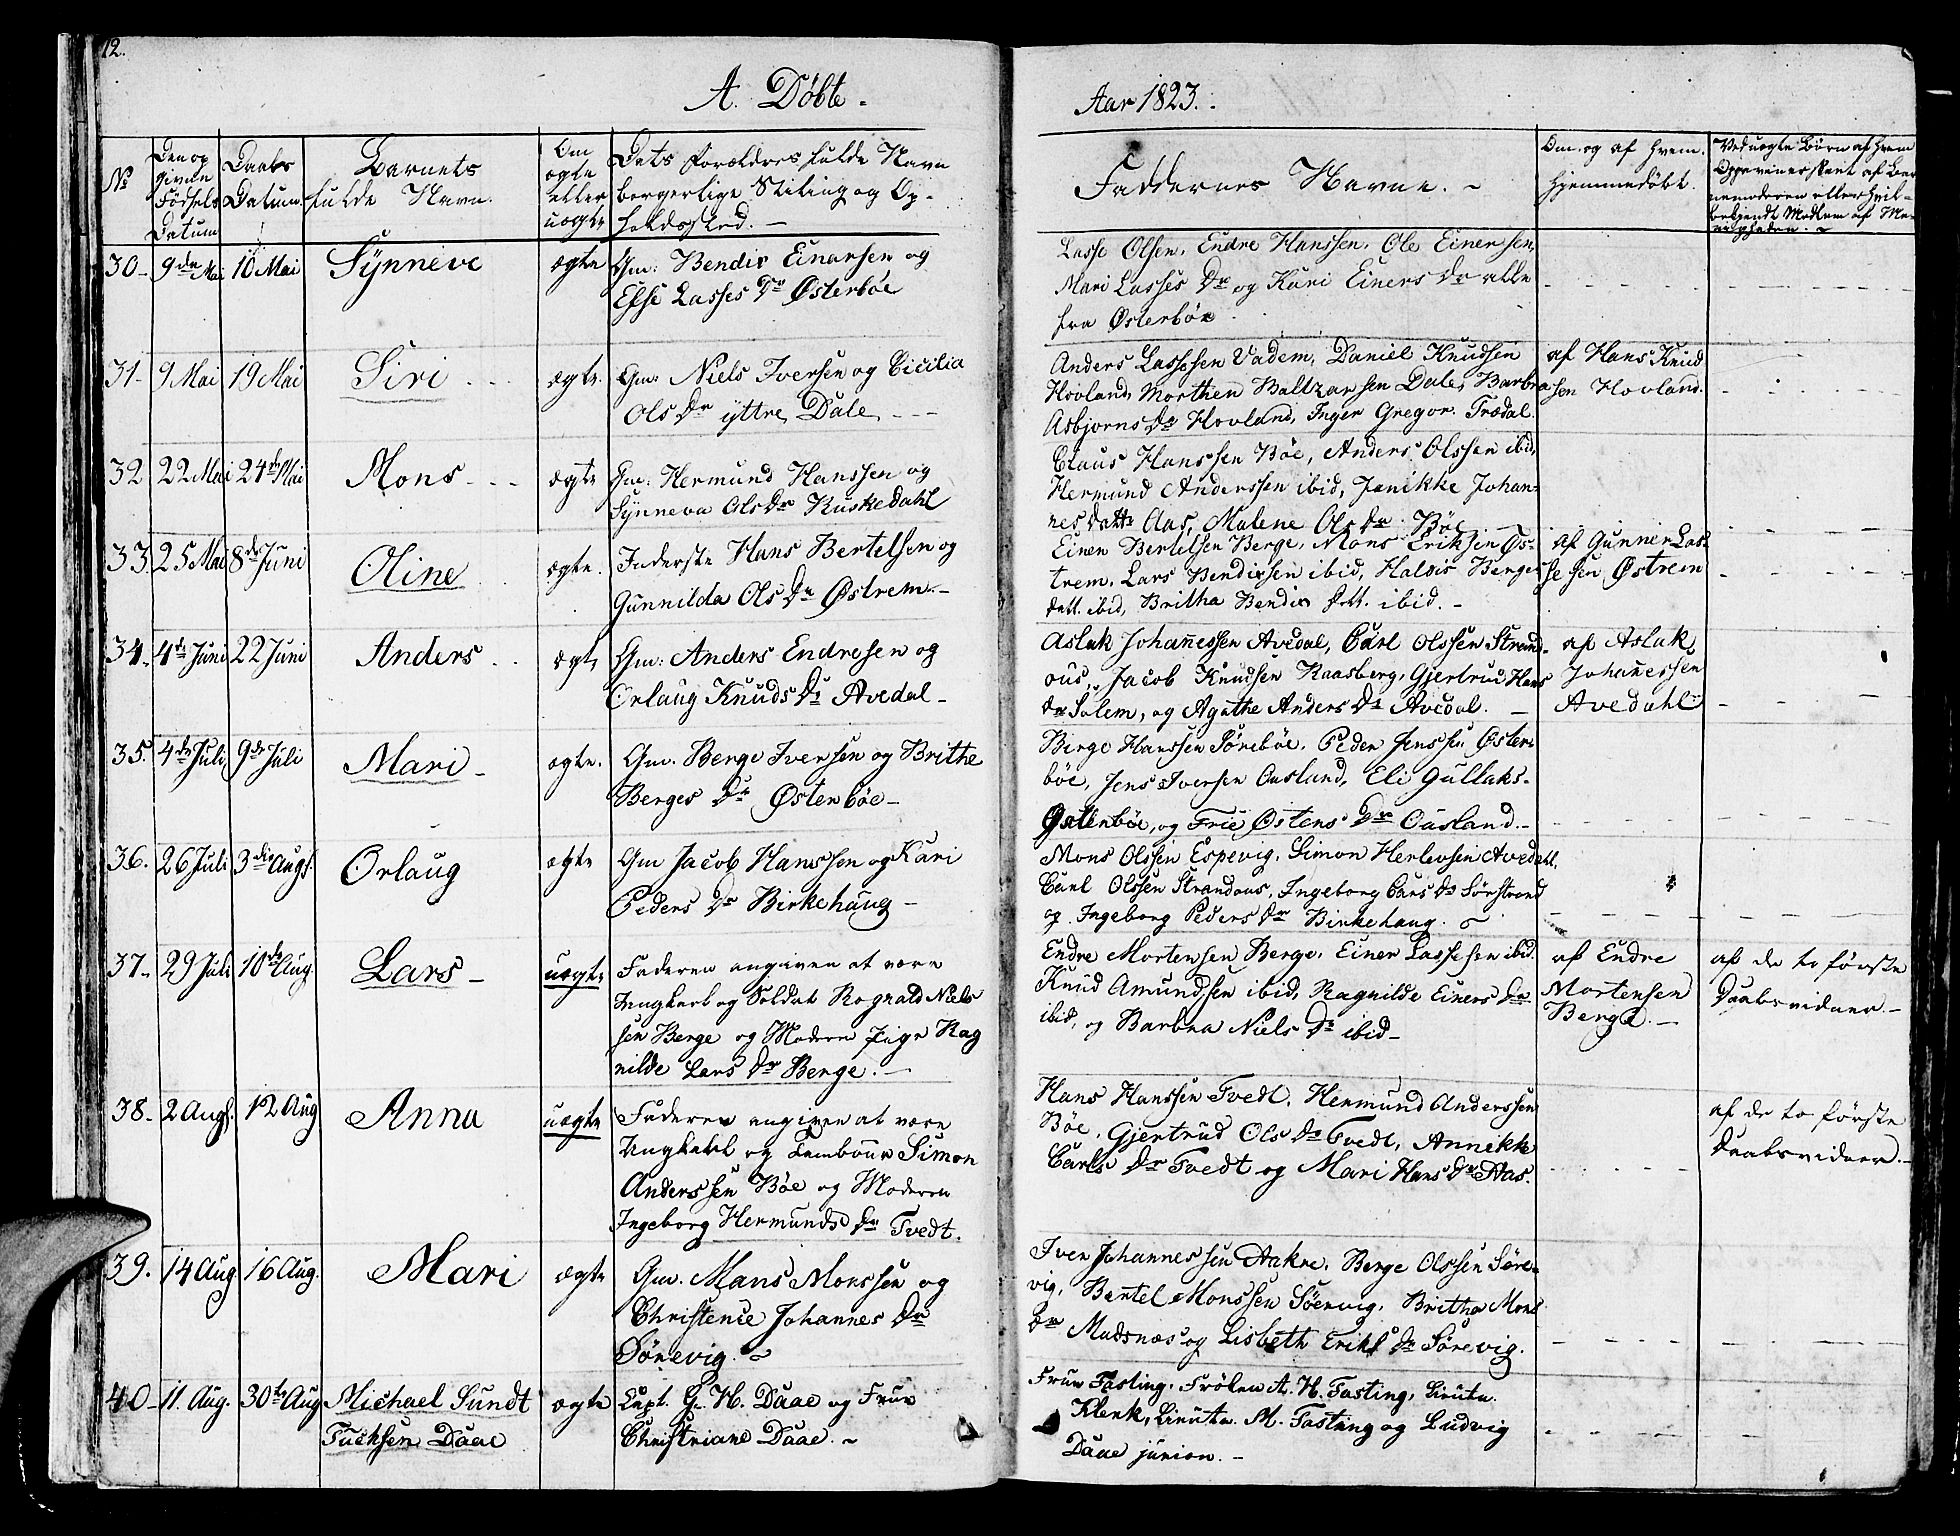 12.
A. Døbte.
Aar 1823.
No
Den opgivne Fødsels Datum
Daabs Datum.
Barnets fulde Navn.
Om ægte eller uægte
Dets Forældres fulde Navn borgerlige Stiling og Opholdssted.
Faddernes Navne.
Om og af hvem hjemmedøbt.
30 9de Mai 10 Mai Synneve ægte Gm: Bendix Einarsen og
Else Lasses Dr Østerbøe
Lasse Olsen, Endre Hanssen, Ole Einersen,
Mari Lasses Dr og Kari Einers Dr alle
fra Østerbøe.
31 9 Mai 19 Mai Siri ægte Gm: Niels Iversen og Cicilia
Ols Dr yttre Dale
Anders Lassesen Vadem, Daniel Knudsen
Hovland, Morthen Baltzarsen Dale, Barbra
Asbjorns Dr Hovland, Inger Gregor. Trædal.
af Hans Knud
sen Hovland.
32 22 Mai 24de Mai Mons ægte Gm: Hermund Hanssen og
Synneva Ols Dr Kuskedahl
Claus Hanssen Bøe, Anders Olssen ibid,
Hermund Anderssen ibid, Janikke Johan-
nes Dattr Aas, Malene Ols Dr Bøe
33 25 Mai 8de Juni Oline ægte. Inderste Hans Bertelsen og
Gunnilda Ols Dr Østrem
Einer Bertelsen Berge, Mons Eriksen Øs-
trem, Lars Bendixsen ibid, Halvis Berges
Datt. ibid, Britha Bendix Datt. ibid.
af Gunner Las
se sen Østrem
34. 4de Juni 22 Juni Anders ægte Gm: Anders Endresen og
Orlaug Knuds Dr Avedal
Aslak Johannessen Avedal, Carl Olssen Strand-
ous, Jacob Knudsen Raasberg, Gjertrud Hans
Dr Salem, og Agathe Anders Dr Avedal.
af Aslak
Johannessen
Avedahl
35. 4de Juli 9de Juli Mari ægte. Gm. Berge Iversen og Brithe
Berges Dr Østerbøe
Berge Hanssen Sørebøe, Peder Jenssen Øster-
bøe, Jens Iversen Ousland, Eli Gullaks-
Østenbøe, og Frie Østens Dr Ousland.
36. 26 Juli 3die Augs. Orlaug ægte Gm Jacob Hanssen og Kari
Peders Dr Birkehaug
Mons Olssen Espevig, Simon Herlovsen Avedahl,
Carl Olssen Strandous, Ingeborg Cars Dr Sørstrand
og Ingeborg Peders Dr Birkehaug.
37. 29 Juli 10de Aug. Lars uægte Faderen angiven at være
Ungkarl og Soldat Rognald Niels
sen Berge og Moderen Pige Rag
nilde Lars Dr Berge.
Endre Mortensen Berge, Einer Lassesen ibid.
Knud Amundsen ibid, Ragnilde Einers Dr
ibid, og Barbra Niels Dr ibid
af Endre
Mortensen
Berge.
af de to første
Daabsvidner.
38. 2 Augs. 12 Aug Anna uægte Faderen angiven at være
Ungkarl og Tambour Simon
Anderssen Bøe og Moderen
Ingeborg Hermunds Dr Tvedt.
Hans Hanssen Tvedt, Hermund Anderssen
Bøe, Gjertrud Ols Dr Tvedt, Annekke
Carls Dr Tvedt og Mari Hans Dr Aas.
af de to første
Daabsvidner.
39. 14 Aug 16 Aug. Mari ægte Gm. Mans Monssen og
Christense Johannes Dr
Sørevig.
Iver Johannessen Aakre, Berge Olssen Søre-
vig, Bertel Monssen Søervig, Britha Mons
Dr Madsnæs og Lisbeth Eriks Dr Sørevig.
40 11. Aug. 30te Aug Michael Sundt
Fuchsen Daae
ægte Capt. G. H. Daae og Frue
Christiane Daae.
Frue Fasting, Frøken A. H. Fasting, Lieutn.
Klenk, Lieutn. M. Fasting og Ludvig
Daae junior.